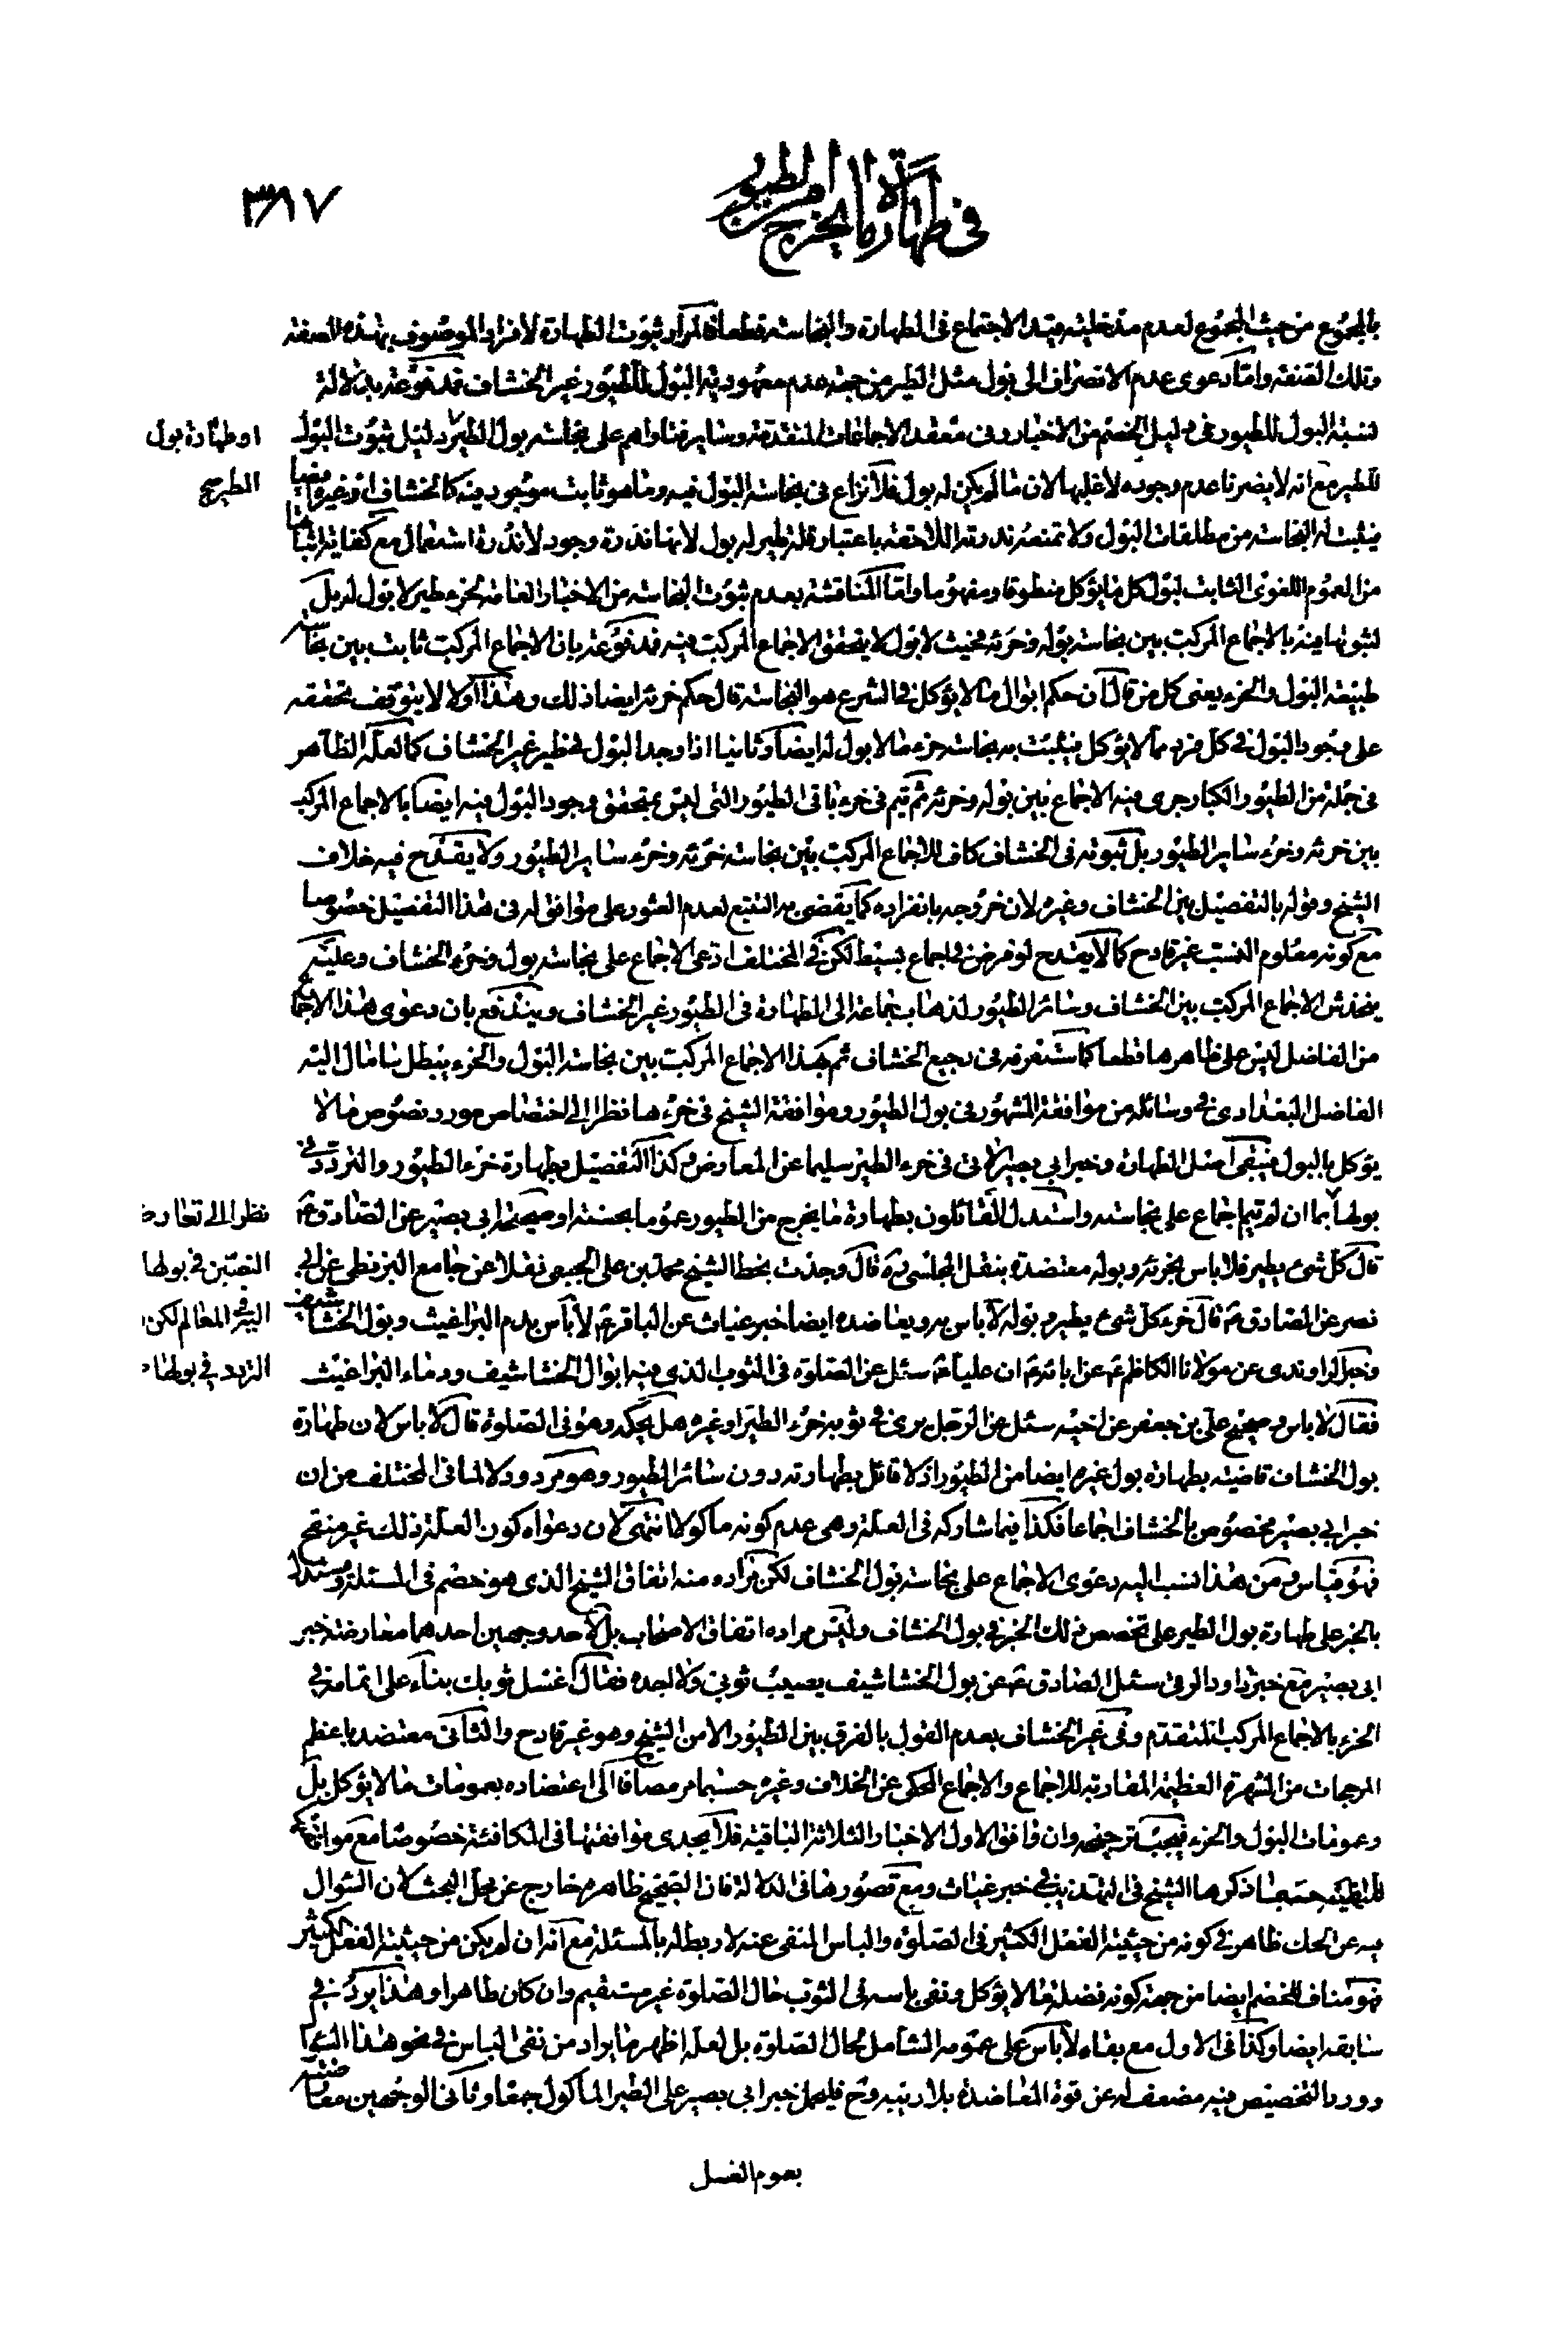 في طهارة ما يخرج من الطيور
٣٨٧
بالمجموع من حيث المجموع لعدم مدخلية قيد الاجتماع في الطهارة والنجاسة قطعا فالمراد ثبوت الطهارة لافراد الموصوف بهذه الصفة
وتلك الصفة واما دعوى عدم الانصراف الى بول مثل الطير من جهة عدم معهودية البول للطيور غير الخشاف فمدفوعة بدلالة
نسبة البول للطيور في دليل الخصم من الاخبار وفي معقد الاجماعات المتقدمة وساير فتاواهم على نجاسة بول الطير دليل ثبوت البول
او طهارة بول
للطير مع انه لا يضرنا عدم وجوده لاغلبها لان ما لم يكن له بول فلا نزاع في نجاسة البول فيه وما هو ثابت موجود فيه كالخشاف او غيره
الطير صح
فيثبت له النجاسة من مطلقات البول ولا تمنعه ندرته اللاحقة باعتبار قلة طير له بول لانها ندرة وجود لا ندرة استعمال مع كفاية
من العموم اللغوي الثابت لبول كل ما يؤكل منطوقا ومفهوما واما المناقشة بعدم ثبوت النجاسة من الاخبار العامة لخرء طير لا بول له بل
ثبوتها فيه بالاجماع المركب بين نجاسة بوله وخرئه فحيث لا بول لا يتحقق الاجماع المركب فيه فمدفوعة بان الاجماع المركب ثابت بين نجاسة
طبيعة البول والخرء يعني كل من قال ان حكم ابوال ما لا يؤكل في الشرع هو النجاسة قال حكم خرئه ايضا ذلك وهذا اولا لا يتوقف تحققه
على وجود البول في كل فرد مما لا يؤكل فيثبت به نجاسة خرء ما لا بول له ايضا وثانيا اذا وجد البول في طير غير الخشاف كما لعله الظاهر
في جملة من الطيور الكبار جرى فيه الاجماع بين بوله وخرئه ثم تيم في خرء باقي الطيور التي لم يتحقق وجود البول فيه ايضا بالاجماع المركب
بين خرئه وخرء ساير الطيور بل ثبوته في الخشاف كاف للاجماع المركب بين نجاسة خرئه وخرء ساير الطيور ولا يقدح فيه خلاف
الشيخ وقوله بالتفصيل بين الخشاف وغيره لان خروجه بانفراده كما يقضي به التتبع لعدم العثور على موافق له في هذا التفصيل خصوصا
مع كونه معلوم النسب غير قادح كما لا يقدح لو فرض في اجماع بسيط لكن في المختلف ادعى الاجماع على نجاسة بول وخرء الخشاف وعليه
ينخدش الاجماع المركب بين الخشاف وسائر الطيور لذهاب جماعة الى الطهارة في الطيور غير الخشاف ويندفع بان دعوى هذا الاجماع
من الفاضل ليس على ظاهرها قطعا كما ستعرفه في رجيع الخشاف ثم بهذا الاجماع المركب بين نجاسة البول والخرء يبطل ما مال اليه
الفاضل البغدادي في وسائله من موافقة المشهور في بول الطيور وموافقة الشيخ في خرءها نظرا الى اختصاص مورد نصوص ما لا
يؤكل بالبول فيبقى اصل الطهارة وخبر ابي بصير الاتي في خرء الطير سليما عن المعارض وكذا التفصيل بطهارة خرء الطيور والتردد في
بولها بما ان لم يتم اجماع على نجاسته واستدل القائلون بطهارة ما يخرج من الطيور عموما بحسنة او صحيحة ابي بصير عن الصادق ع
نظرا الى تعارض
قال كل شئ يطير فلا باس بخرئه وبوله معتضدة بنقل المجلسي ره قال وجدت بخط الشيخ محمد بن علي الجبعي نقلا عن جامع البزنطي عن ابي
النصين في بولها
بصير عن الصادق ع قال خرء كل شئ يطير وبوله لا باس به ويعاضده ايضا خبر غياث عن الباقر ع لا باس بدم البراغيث وبول الخشاشيف
في المعالم لكن
وخبر الراوندي عن مولانا الكاظم ع عن ابائه ع ان عليا ع سئل عن الصلوة في الثوب الذي فيه ابوال الخشاشيف ودماء البراغيث
التردد في بولها
فقال لا باس وصحيح علي بن جعفر عن اخيه سئل عن الرجل يرى في ثوبه خرء الطير او غيره هل يحكه وهو في الصلوة قال لا باس لان طهارة
بول الخشاف قاضية بطهارة بول غيره ايضا من الطيور اذ لا قائل بطهارته دون سائر الطيور وهو مردود لا لما في المختلف من ان
خبر ابي بصير مخصوص بالخشاف اجماعا فكذا فيما شاركه في العلة وهي عدم كونه ماكولا انتهى لان دعواه كون العلة ذلك غير منقح
فهو قياس ومن هذا نسب اليه دعوى الاجماع على نجاسة بول الخشاف لكن مراده منه اتفاق الشيخ الذي هو خصم في المسئلة ومستدل
بالخبر على طهارة بول الطير على تخصص ذلك الخبر في بول الخشاف وليس مراده اتفاق الاصحاب بل لاحد وجهين احدهما معارضة خبر
ابي بصير مع خبر داود الرقي سئل الصادق ع عن بول الخشاشيف يصيب ثوبي ولا اجده فقال اغسل ثوبك بناء على اتمامه في
الخرء بالاجماع المركب المتقدم وفي غير الخشاف بعدم القول بالفرق بين الطيور الا من الشيخ وهو غير قادح والثاني معتضد باعظم
المرجحات من الشهرة العظيمة المقاربة للاجماع والاجماع المحكي عن الخلاف وغيره حسبما مر مضافا الى اعتضاده بعمومات ما لا يؤكل بل
وعمومات البول والخرء فيجب ترجيحه وان وافق الاول الاخبار الثلاثة الباقية فلا يجدي موافقتها في المكافئة خصوصا مع موافقتها
للتقية حسبما ذكرها الشيخ في التهذيب في خبر غياث ومع قصورها في الدلالة فان الصحيح ظاهره خارج عن محل البحث لان السؤال
فيه عن الحك ظاهر في كونه من حيثية الفعل الكثير في الصلوة والباس المنفي عنه لا ربط له بالمسئلة مع انه ان لم يكن من حيثية الفعل الكثير
فهو مناف للخصم ايضا من جهة كونه فضلة ما لا يؤكل ونفي باسه في الثوب حال الصلوة غير مستقيم وان كان طاهرا وهذا يرد في
سابقه ايضا وكذا في الاول مع بقاء لا باس على عمومه الشامل لحال الصلوة بل لعله اظهر ما يراد من نفي الباس في نحو هذا
وورد التخصيص فيه مضعف له عن قوة المعاضدة بلا ريبة وح فليحمل خبر ابي بصير على الطير الماكول جمعا وثاني الوجهين معارضته
بعموم الغسل